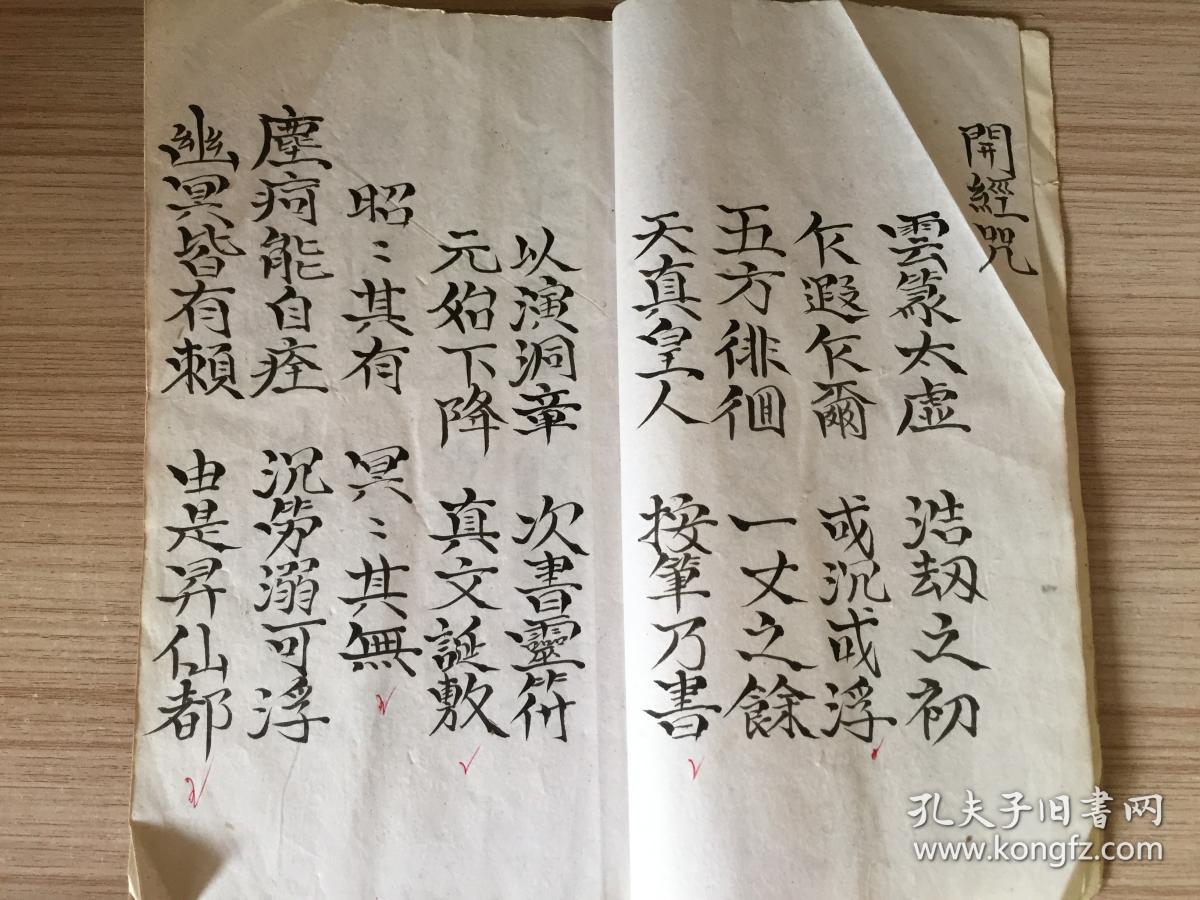 開經咒
雲篆太虛 浩劫之初
乍遐乍爾 或沉或浮
五方徘徊 一丈之餘
天真皇人 按筆乃書
以演洞章 次書靈符
元始下降 真文誕敷
昭〻其有 冥〻其無
塵痾能自痊 沉劳溺可浮
幽冥皆有賴 由是昇仙都
孔夫子旧书网
www.kongfz.com